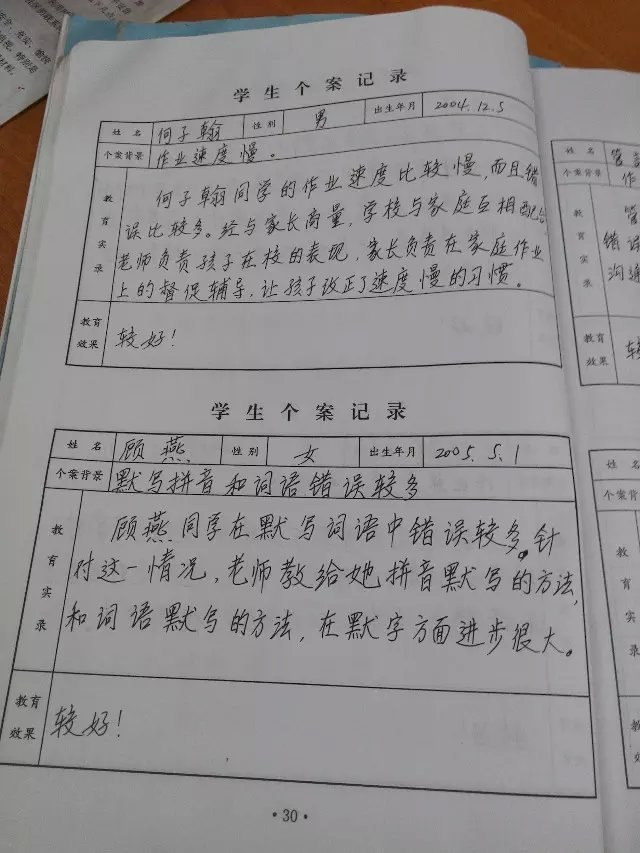 学生个案记录
姓名 何子翰 性别 男 出生年月 2004.12.5
个案背景 作业速度慢。
教育实录
何子翰同学的作业速度比较慢,而且错
误比较多。经与家长商量,学校与家庭互相配合
老师负责孩子在校的表现,家长负责在家庭作业
上的督促辅导,让孩子改正了速度慢的习惯。
教育效果 较好!
学生个案记录
姓名 顾燕 性别 女 出生年月 2005.5.1
个案背景 默写拼音和词语错误较多
教育实录
顾燕同学在默写词语中错误较多。针
对这一情况,老师教给她拼音默写的方法,
和词语默写的方法,在默字方面进步很大。
教育效果 较好!
·30·
姓名
个案背景 作
教育实录
错误
教育效果 较
姓名
个案背景
教育实录